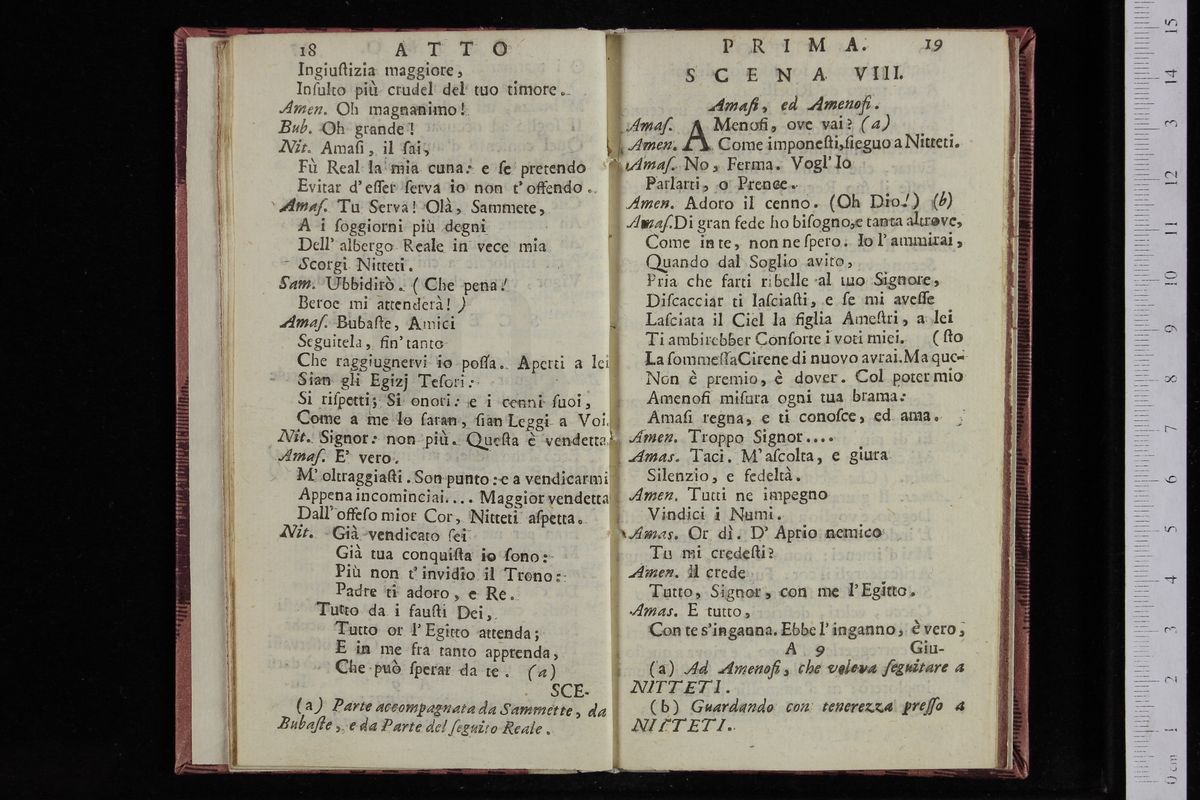 18 ATTO
Ingiuſtizia maggiore,
Inſulto più crudel del tuo timore.
Amen. Oh magnanimo!
Bub. Oh grande!
Nit. Amaſi, il ſai,
Fù Real la mia cuna: e ſe pretendo
Evitar d'eſſer ſerva io non t'offendo.
Amaſ. Tu Serva! Olà, Sammete,
A i ſoggiorni più degni
Dell' albergo Reale in vece mia
Scorgi Nitteti.
Sam. Ubbidirò. (Che pena!
Beroe mi attenderà!)
Amaſ. Bubaſte, Amici
Seguitela, fin' tanto
Che raggiugnervi io poſſa. Aperti a lei
Sian gli Egizj Teſori:
Si riſpetti; Si onori: e i cenni ſuoi,
Come a me lo faran, ſian Leggi a Voi.
Nit. Signor: non più. Queſta è vendetta.
Amaſ. E' vero.
M'oltraggiaſti. Son punto: e a vendicarmi
Appena incominciai.... Maggior vendetta
Dall' offeſo mior Cor, Nitteti aſpetta.
Nit. Già vendicato ſei
Già tua conquiſta io ſono:
Più non t'invidio il Trono:
Padre ti adoro, e Re.
Tutto da i fauſti Dei,
Tutto or l'Egitto attenda;
E in me fra tanto apprenda,
Che può ſperar da te. (a)
SCE-
(a) Parte accompagnata da Sammette, da
Bubaſte, e da Parte del ſeguito Reale.
PRIMA. 19
SCENA VIII.
Amaſi, ed Amenofi.
Amaſ. AMenofi, ove vai? (a)
Amen. Come imponeſti, ſieguo a Nitteti.
Amaſ. No, Ferma. Vogl' Io
Parlarti, o Prence.
Amen. Adoro il cenno. (Oh Dio!) (b)
Amaſ. Di gran fede ho biſogno, e tanta altrove,
Come in te, non ne ſpero. Io l'ammirai,
Quando dal Soglio avito,
Pria che farti ribelle al tuo Signore,
Diſcacciar ti laſciaſti, e ſe mi aveſſe
Laſciata il Ciel la figlia Ameſtri, a lei
Ti ambirebber Conſorte i voti miei. (ſto
La ſommeſſa Cirene di nuovo avrai. Ma que-
Non è premio, è dover. Col poter mio
Amenofi miſura ogni tua brama:
Amaſi regna, e ti conoſce, ed ama.
Amen. Troppo Signor....
Amas. Taci. M'aſcolta, e giura
Silenzio, e fedeltà.
Amen. Tutti ne impegno
Vindici i Numi.
Amas. Or dì. D'Aprio nemico
Tu mi credeſti?
Amen. il crede
Tutto, Signor, con me l'Egitto.
Amas. E tutto,
Con te s'inganna. Ebbe l'inganno, è vero,
A 9 Giu-
(a) Ad Amenofi, che voleva ſeguitare a
NITTETI.
(b) Guardando con tenerezza preſſo a
NITTETI.